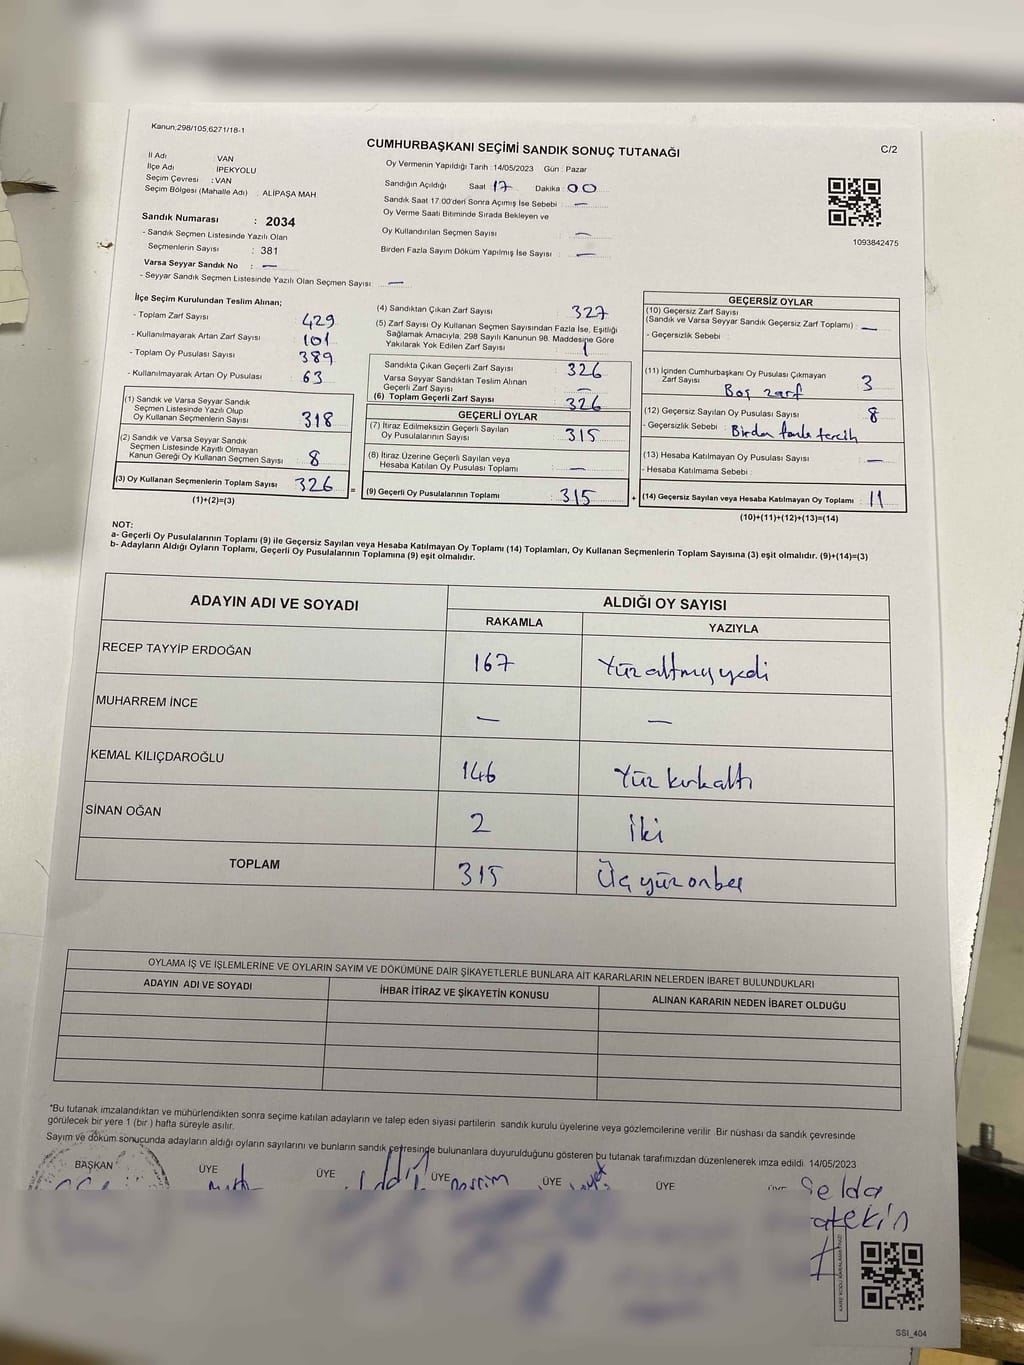 Kanun;298/105,6271/18-1
CUMHURBAŞKANI SEÇİMİ SANDIK SONUÇ TUTANAĞI
C/2
İl Adı : VAN
İlçe Adı İPEKYOLU
Seçim Çevresi : VAN
Seçim Bölgesi (Mahalle Adı) : ALİPAŞA MAH
Oy Vermenin Yapıldığı Tarih : 14/05/2023 Gün : Pazar
Sandığın Açıldığı Saat 17 Dakika 00
Sandık Saat 17:00'den Sonra Açılmış İse Sebebi : —
Oy Verme Saati Bitiminde Sırada Bekleyen ve
Oy Kullandırılan Seçmen Sayısı : —
Birden Fazla Sayım Döküm Yapılmış İse Sayısı : —
1093842475
Sandık Numarası : 2034
- Sandık Seçmen Listesinde Yazılı Olan
Seçmenlerin Sayısı : 381
Varsa Seyyar Sandık No : —
- Seyyar Sandık Seçmen Listesinde Yazılı Olan Seçmen Sayısı: —
İlçe Seçim Kurulundan Teslim Alınan;
- Toplam Zarf Sayısı : 429
- Kullanılmayarak Artan Zarf Sayısı : 101
- Toplam Oy Pusulası Sayısı : 389
- Kullanılmayarak Artan Oy Pusulası : 63
(1) Sandık ve Varsa Seyyar Sandık
Seçmen Listesinde Yazılı Olup
Oy Kullanan Seçmenlerin Sayısı : 318
(2) Sandık ve Varsa Seyyar Sandık
Seçmen Listesinde Kayıtlı Olmayan
Kanun Gereği Oy Kullanan Seçmen Sayısı : 8
(3) Oy Kullanan Seçmenlerin Toplam Sayısı : 326 =
(1)+(2)=(3)
(4) Sandıktan Çıkan Zarf Sayısı : 327
(5) Zarf Sayısı Oy Kullanan Seçmen Sayısından Fazla İse, Eşitliği
Sağlamak Amacıyla, 298 Sayılı Kanunun 98. Maddesine Göre
Yakılarak Yok Edilen Zarf Sayısı : 1
Sandıkta Çıkan Geçerli Zarf Sayısı : 326
Varsa Seyyar Sandıktan Teslim Alınan
Geçerli Zarf Sayısı : —
(6) Toplam Geçerli Zarf Sayısı : 326
GEÇERLİ OYLAR
(7) İtiraz Edilmeksizin Geçerli Sayılan
Oy Pusulalarının Sayısı : 315
(8) İtiraz Üzerine Geçerli Sayılan veya
Hesaba Katılan Oy Pusulası Toplamı : —
(9) Geçerli Oy Pusulalarının Toplamı : 315 +
GEÇERSİZ OYLAR
(10) Geçersiz Zarf Sayısı
(Sandık ve Varsa Seyyar Sandık Geçersiz Zarf Toplamı) : —
- Geçersizlik Sebebi :
(11) İçinden Cumhurbaşkanı Oy Pusulası Çıkmayan
Zarf Sayısı 3
Boş zarf
(12) Geçersiz Sayılan Oy Pusulası Sayısı : 8
- Geçersizlik Sebebi : Birden fazla tercih
(13) Hesaba Katılmayan Oy Pusulası Sayısı : —
- Hesaba Katılmama Sebebi :
(14) Geçersiz Sayılan veya Hesaba Katılmayan Oy Toplamı : 11
(10)+(11)+(12)+(13)=(14)
NOT:
a- Geçerli Oy Pusulalarının Toplamı (9) ile Geçersiz Sayılan veya Hesaba Katılmayan Oy Toplamı (14) Toplamları, Oy Kullanan Seçmenlerin Toplam Sayısına (3) eşit olmalıdır. (9)+(14)=(3)
b- Adayların Aldığı Oyların Toplamı, Geçerli Oy Pusulalarının Toplamına (9) eşit olmalıdır.
ADAYIN ADI VE SOYADI
ALDIĞI OY SAYISI
RAKAMLA YAZIYLA
RECEP TAYYİP ERDOĞAN 167 Yüzaltmışyedi
MUHARREM İNCE — —
KEMAL KILIÇDAROĞLU 146 Yüz kırkaltı
SİNAN OĞAN 2 İki
TOPLAM 315 Üçyüzonbeş
OYLAMA İŞ VE İŞLEMLERİNE VE OYLARIN SAYIM VE DÖKÜMÜNE DAİR ŞİKAYETLERLE BUNLARA AİT KARARLARIN NELERDEN İBARET BULUNDUKLARI
ADAYIN ADI VE SOYADI İHBAR İTİRAZ VE ŞİKAYETİN KONUSU ALINAN KARARIN NEDEN İBARET OLDUĞU
*Bu tutanak imzalandıktan ve mühürlendikten sonra seçime katılan adayların ve talep eden siyasi partilerin sandık kurulu üyelerine veya gözlemcilerine verilir .Bir nüshası da sandık çevresinde
görülecek bir yere 1 (bir ) hafta süreyle asılır.
Sayım ve döküm sonucunda adayların aldığı oyların sayılarını ve bunların sandık çevresinde bulunanlara duyurulduğunu gösteren bu tutanak tarafımızdan düzenlenerek imza edildi. 14/05/2023
BAŞKAN ÜYE ÜYE ÜYE ÜYE ÜYE
Selda
SSI_404